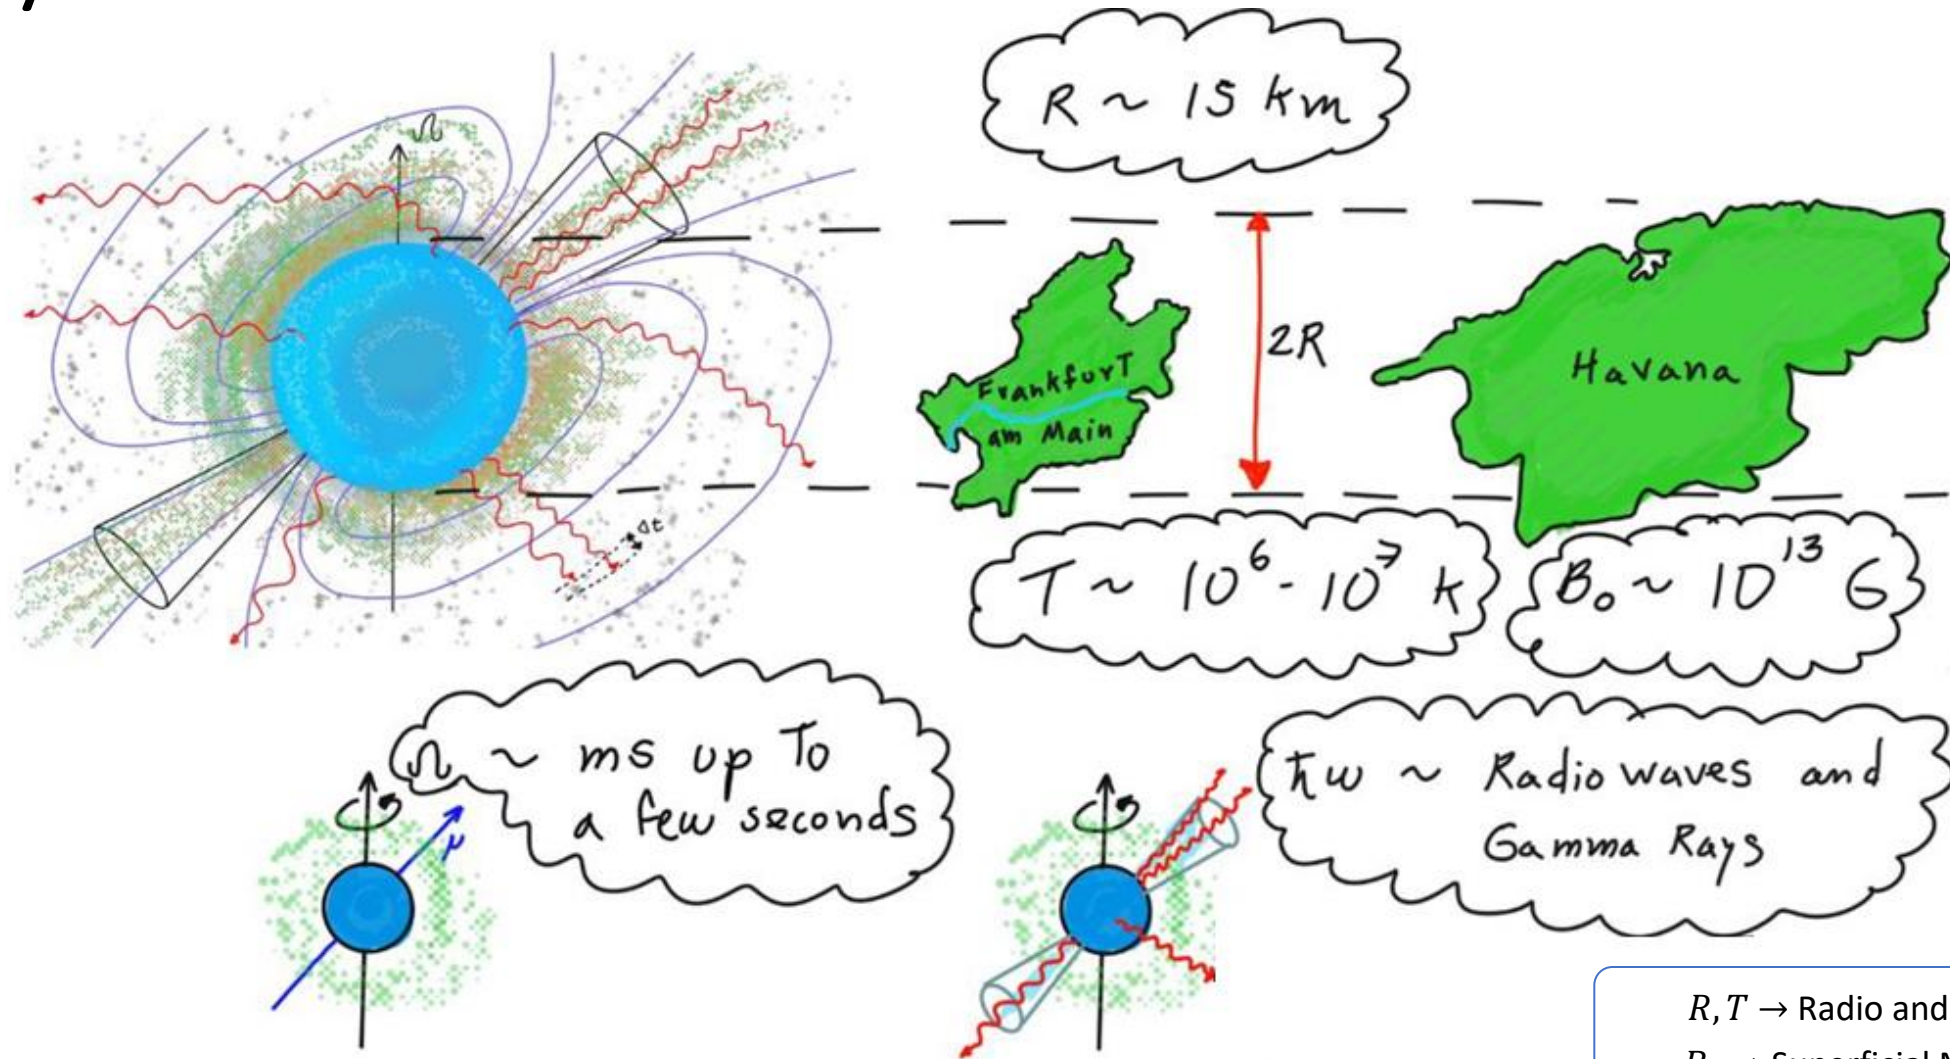 R ~ 15 km
Ω
2R
Frankfurt
am Main
Havana
Δt
T ~ 10⁶ - 10⁷ K
B₀ ~ 10¹³ G
Ω ~ ms up To
a few seconds
μ
ħω ~ Radio waves and
Gamma Rays
R, T → Radio and
→ Superficial